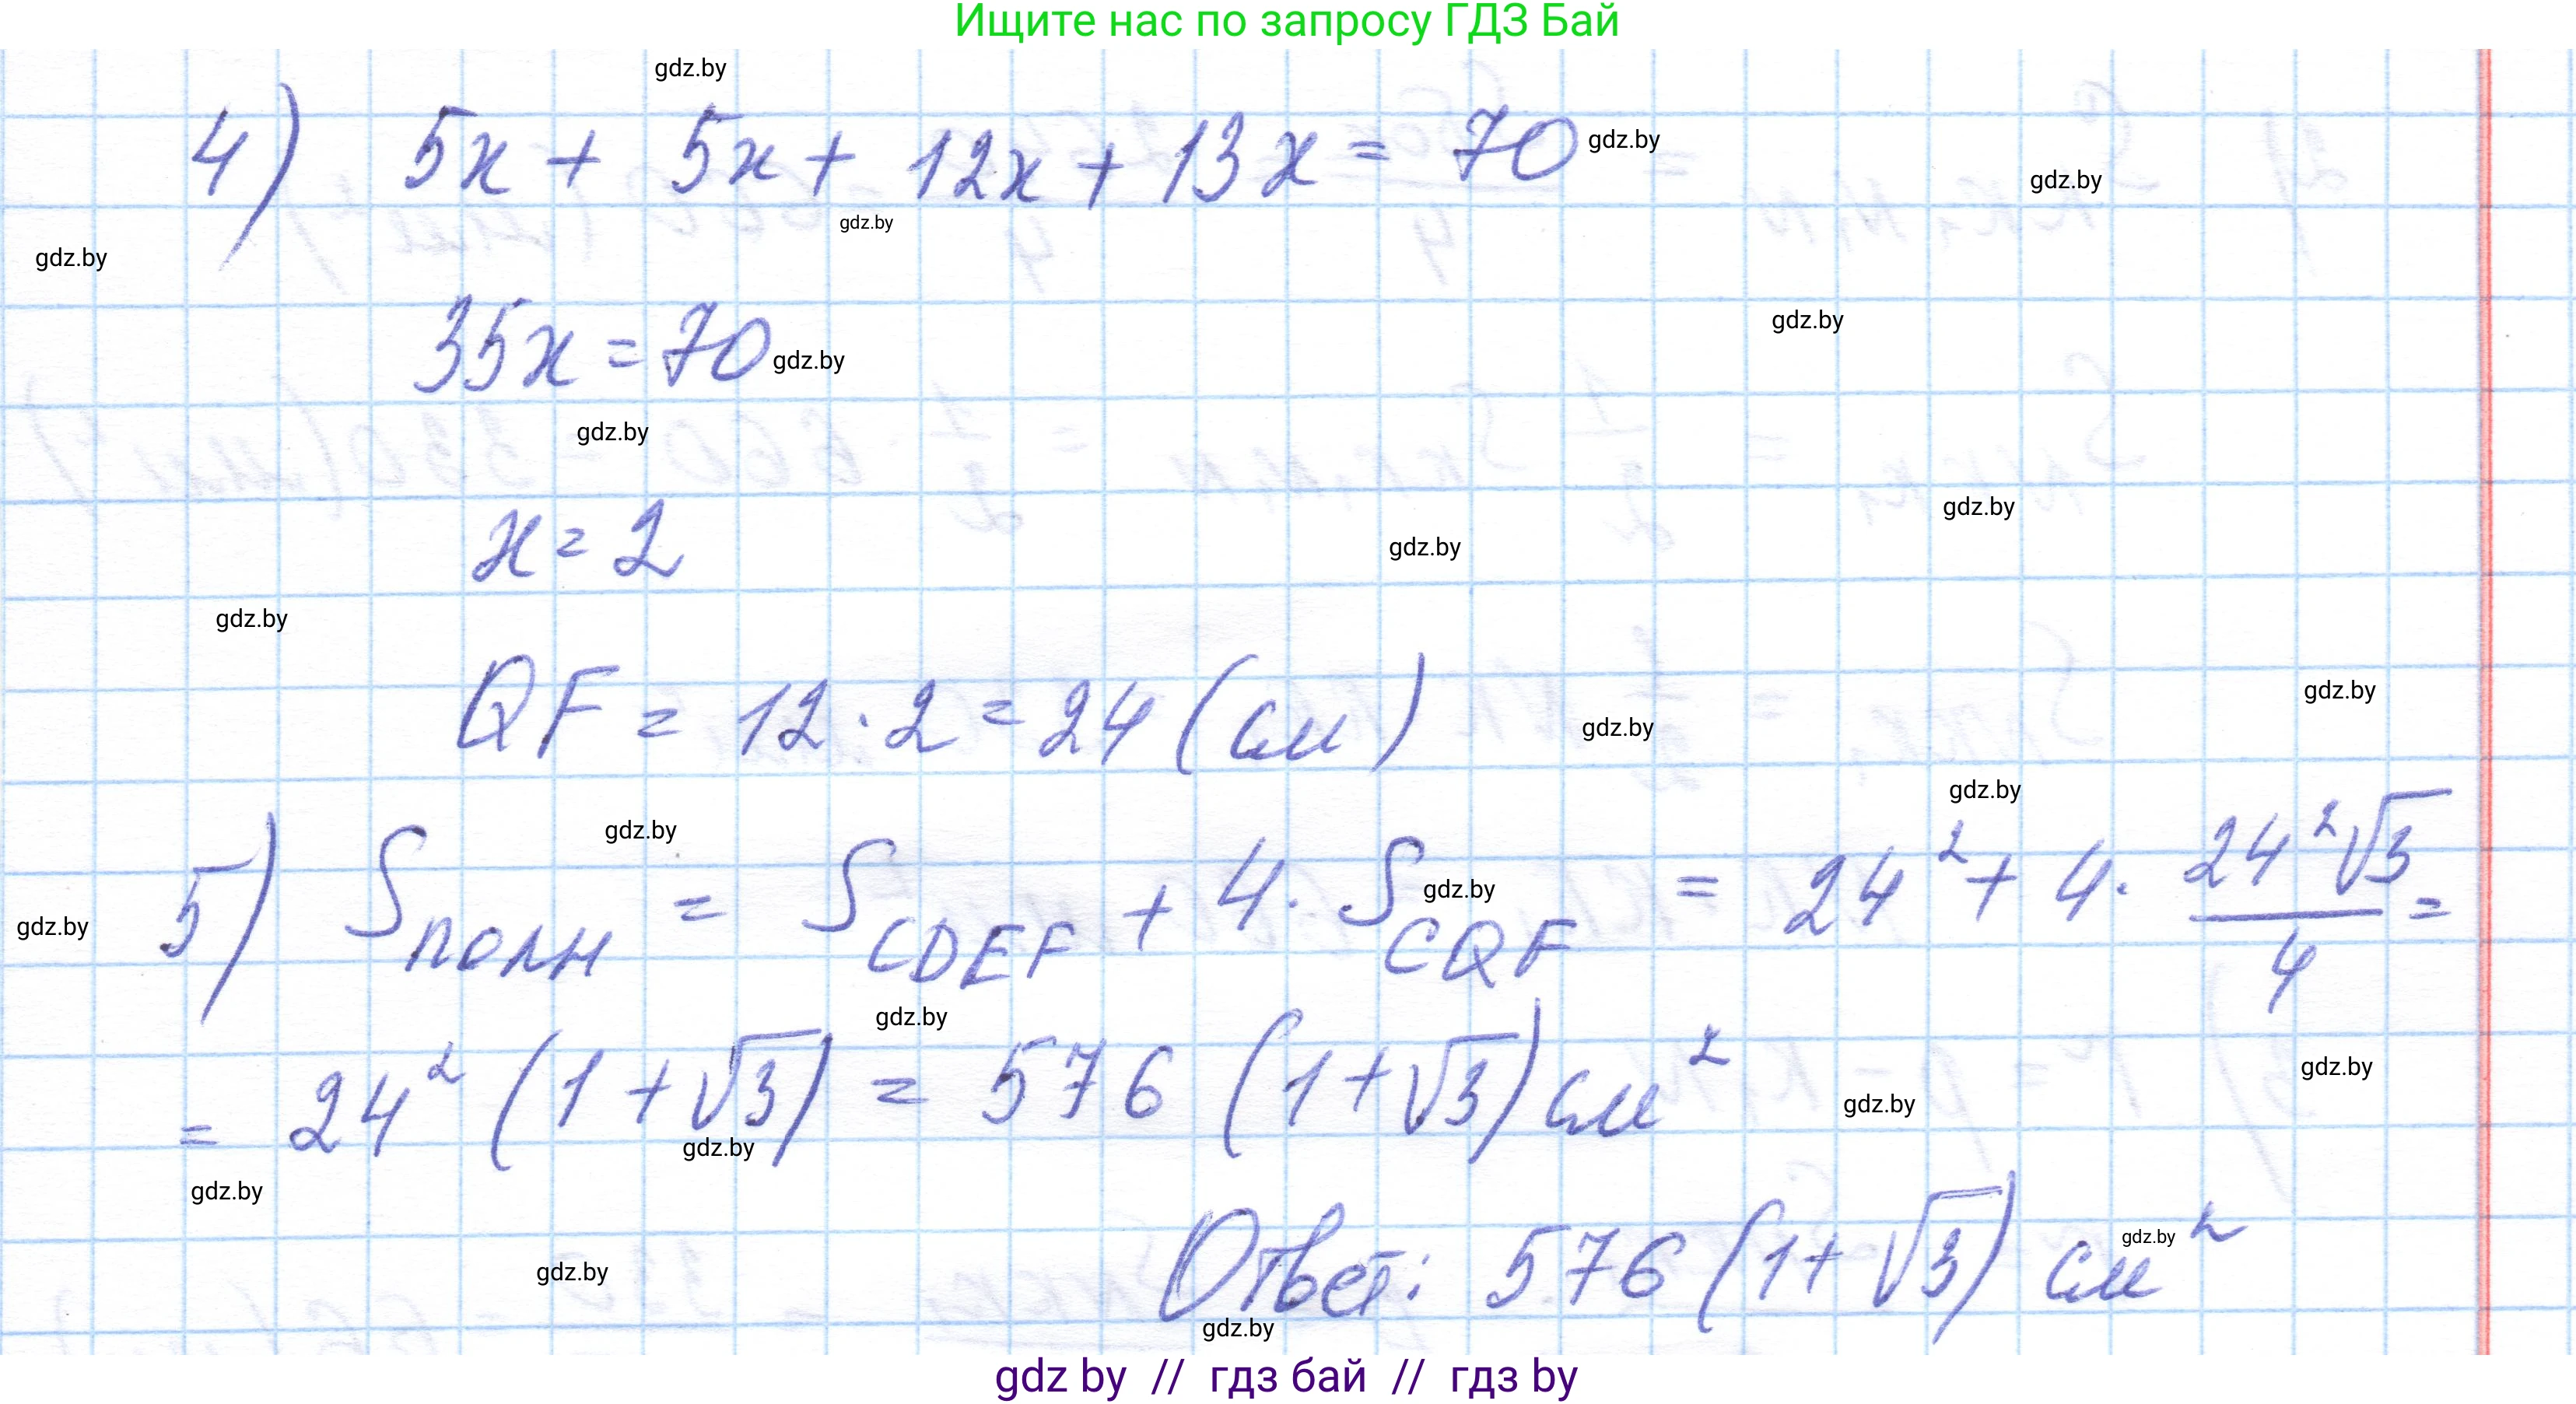 Ищите нас по запросу ГДЗ Бай
gdz.by
4) 5x + 5x + 12x + 13x = 70 gdz.by
gdz.by
gdz.by
gdz.by
gdz.by
35x = 70 gdz.by
gdz.by
gdz.by
x = 2
gdz.by
gdz.by
QF = 12 · 2 = 24 (см)
gdz.by
gdz.by
gdz.by
gdz.by
5) S полн = S CDEF + 4 · S CQF = 24² + 4 · 24²√3 / 4 =
gdz.by
gdz.by
gdz.by
= 24² (1 + √3) = 576 (1 + √3) см²
gdz.by
gdz.by
gdz.by
gdz.by
Ответ: 576 (1 + √3) см²
gdz.by
gdz.by
gdz.by
gdz by // гдз бай // гдз by